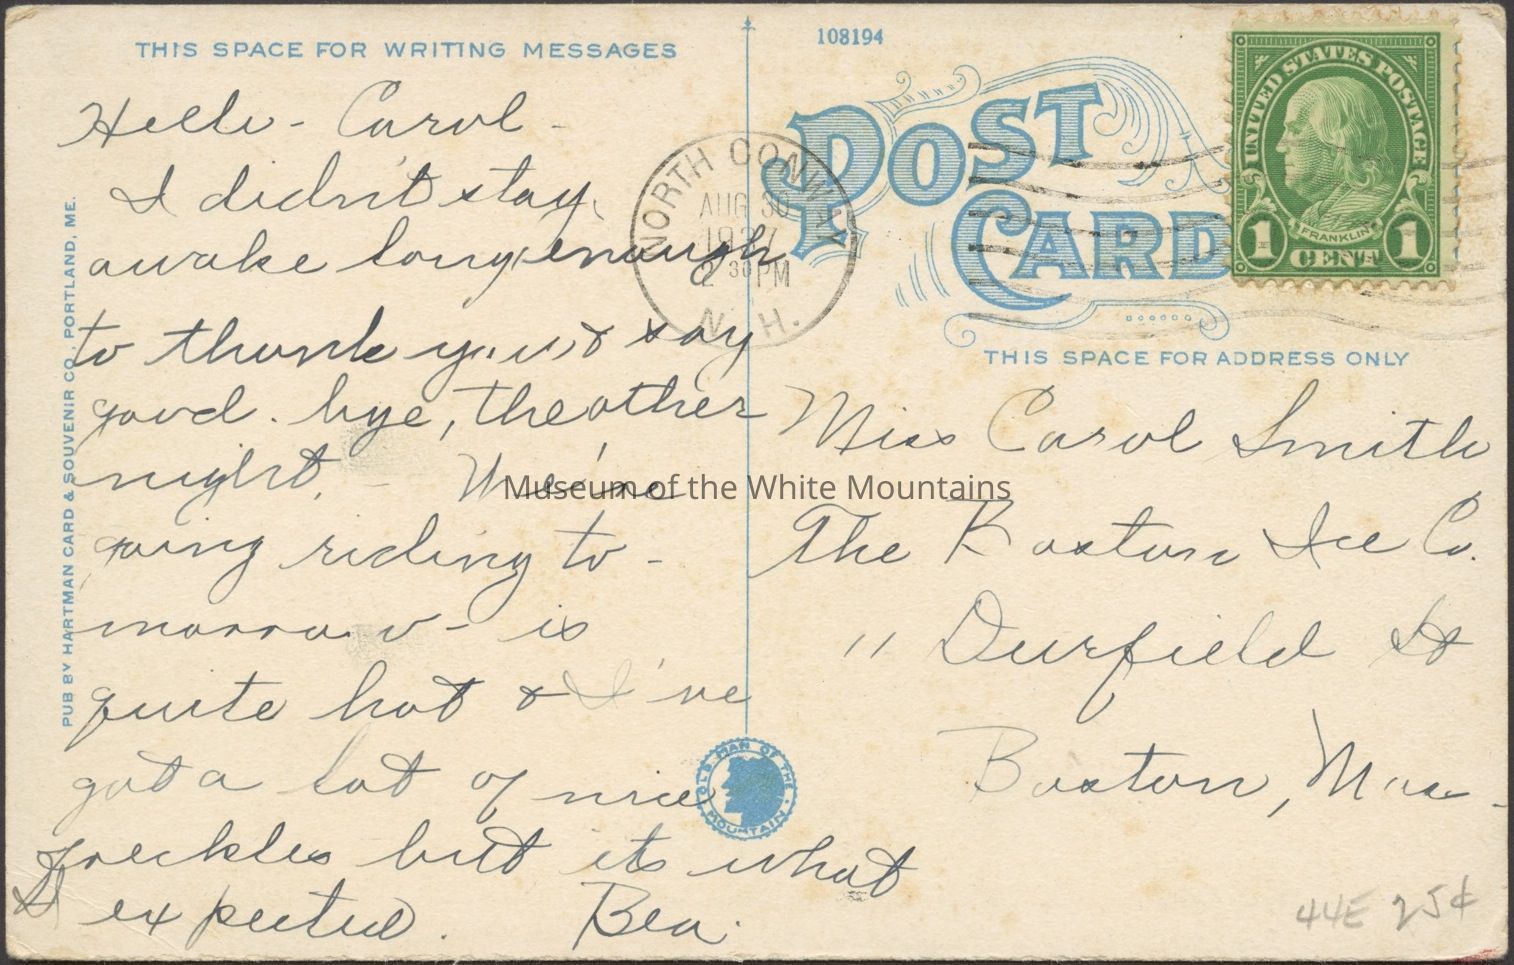 THIS SPACE FOR WRITING MESSAGES
Hello - Carol -
I didn't stay
awake long enough
to thank you & say
good-bye, the other
night. - We're
going riding to -
morrow - is
quite hot & I've
got a lot of nice
freckles but its what
I expected. Bea.
PUB BY HARTMAN CARD & SOUVENIR CO. PORTLAND, ME.
108194
POST
CARD
NORTH CONWAY
AUG 30
1937
2 30 PM
N. H.
UNITED STATES POSTAGE
FRANKLIN
1 CENT 1
THIS SPACE FOR ADDRESS ONLY
Miss Carol Smith
The Boston Ice Co.
11 Deerfield St
Boston, Mass.
OLD MAN OF THE MOUNTAIN
44E 25¢
Museum of the White Mountains